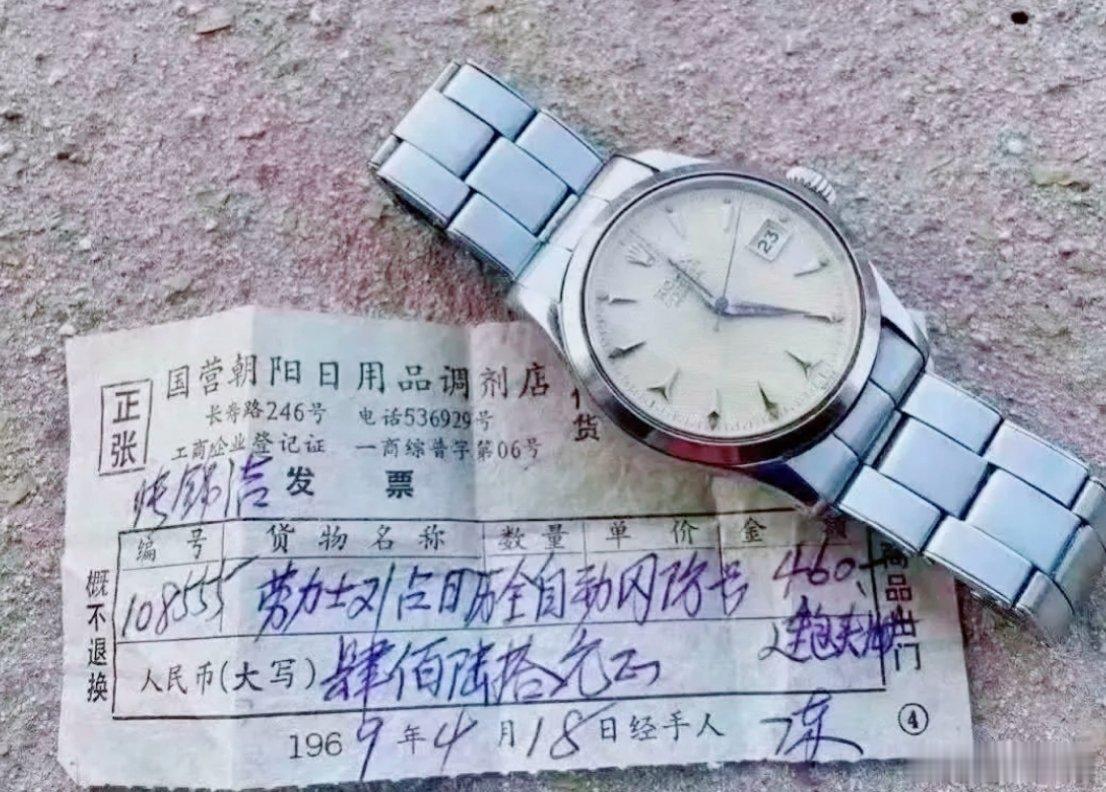 正张
国营朝阳日用品调剂店
长寿路246号 电话536929号
工商企业登记证 一商综普字第06号
货
发票
编号 货物名称 数量 单价 金额
108555 劳力士 21 日历全自动 防 460
人民币(大写) 肆佰陆拾元正
1969年4月18日经手人
概不退换
商品出门
④
23